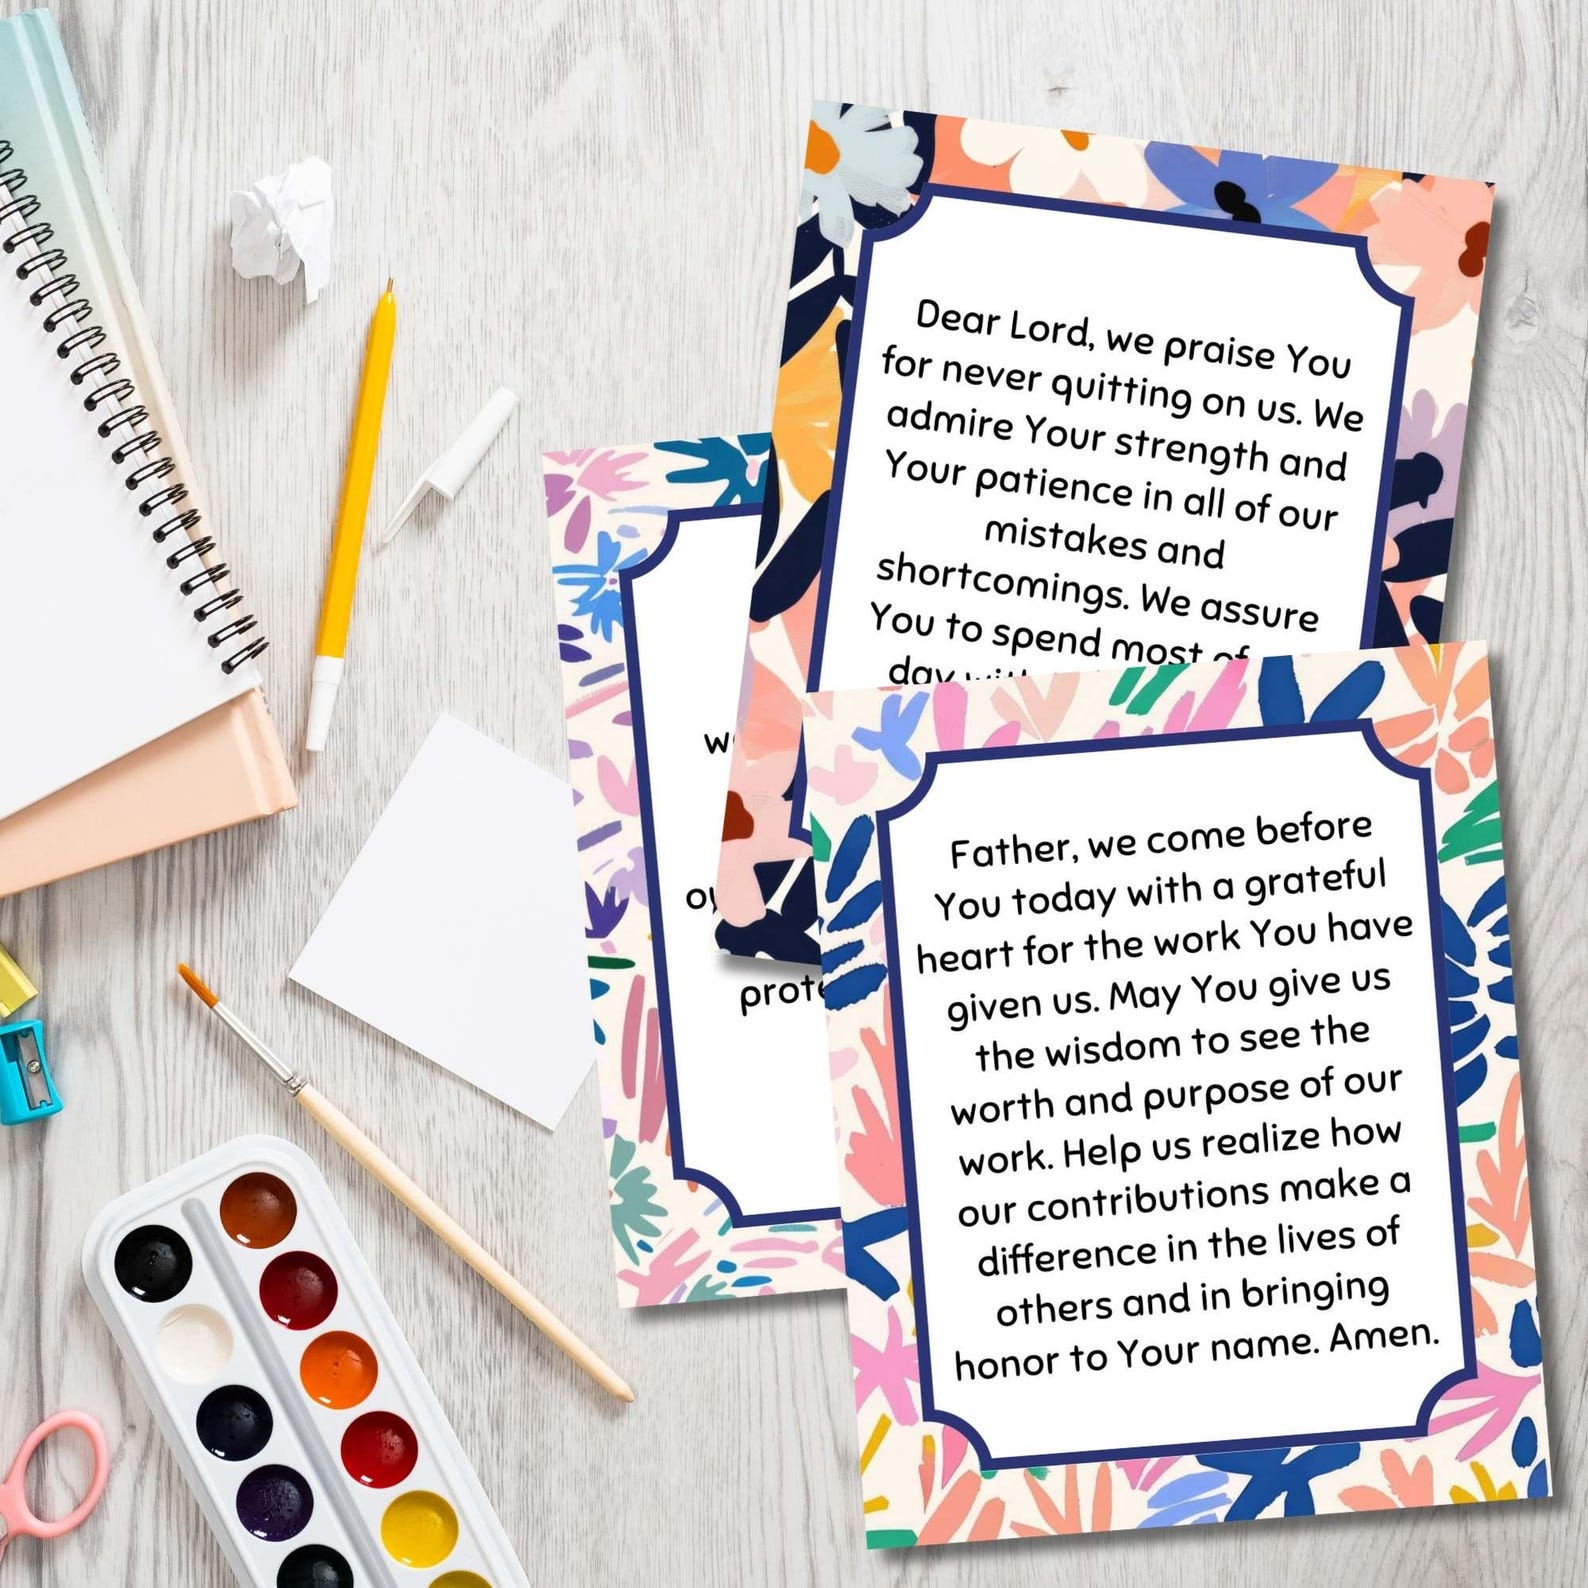 Dear Lord, we praise You
for never quitting on us. We
admire Your strength and
Your patience in all of our
mistakes and
shortcomings. We assure
You to spend most of
day
Father, we come before
You today with a grateful
heart for the work You have
given us. May You give us
the wisdom to see the
worth and purpose of our
work. Help us realize how
our contributions make a
difference in the lives of
others and in bringing
honor to Your name. Amen.